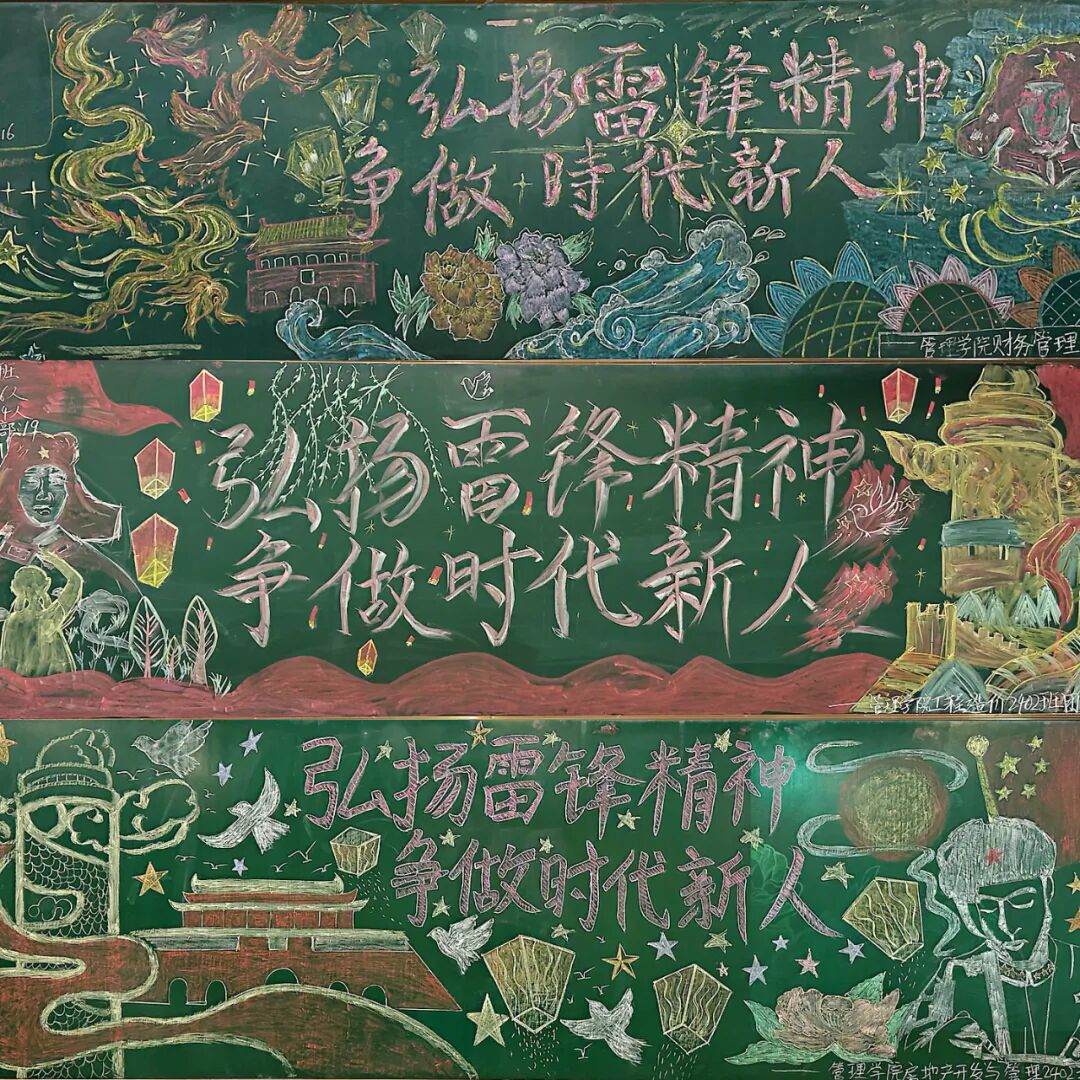 16
弘扬雷锋精神
争做時代新人
——管理学院财务管理
班
6人
4人
部:19
弘扬雷锋精神
争做时代新人
——管理学院工程造价2402班团
弘扬雷锋精神
争做时代新人
管理学院房地产开发与管理2402